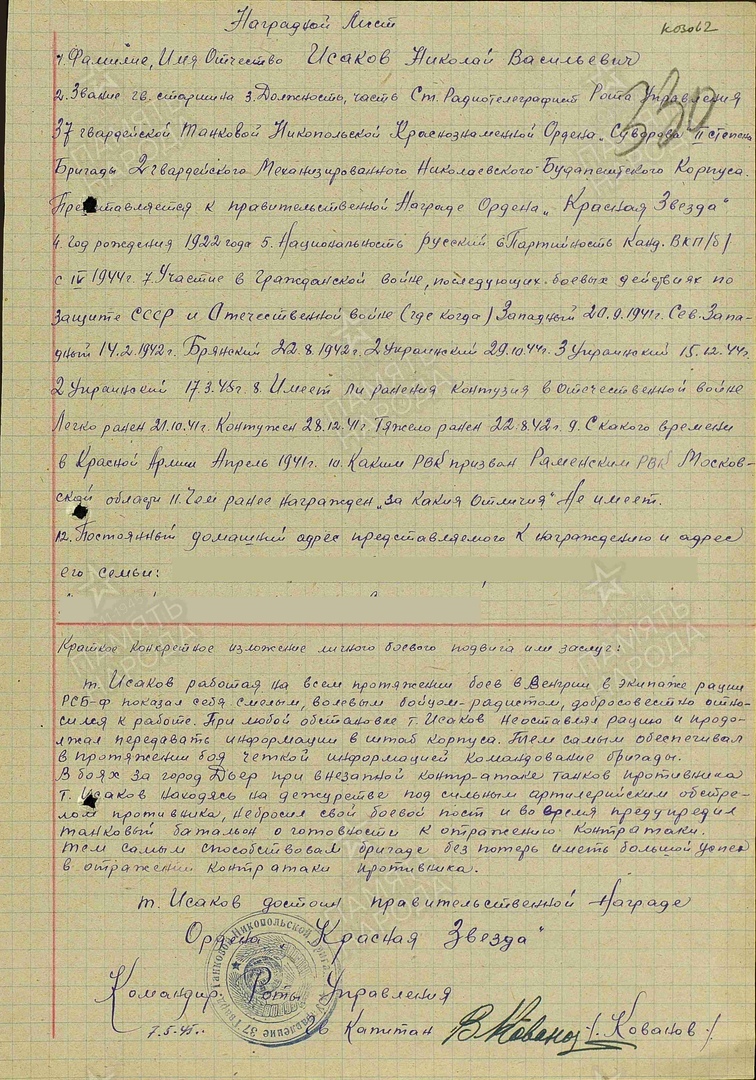 Наградной Лист
330
1. Фамилие, Имя Отчество Исаков Николай Васильевич
2. Звание гв. старшина 3. Должность, часть Ст. Радиотелеграфист Рота Управления
37 гвардейской Танковой Никопольской Краснознаменной Ордена „Суворова" II степени
Бригады 2 гвардейского Механизированного Николаевского-Будапештского Корпуса.
Представляется к правительственной Награде Ордена „Красная Звезда"
4. Год рождения 1922 года 5. Национальность русский 6. Партийность Канд. ВКП/б/
с IV 1944г. 7. Участие в Гражданской войне, последующих боевых действиях по
защите СССР и Отечественной войне (где когда) Западный 20.9.1941г. Сев. Запа-
дный 14.2.1942г. Брянский 22.8.1942г. 2 Украинский 29.10.44г. 3 Украинский 15.12.44г.
2 Украинский 17.3.45г. 8. Имеет ли ранения контузия в отечественной войне
Легко ранен 21.10.41г. Контужен 28.12.41г. Тяжело ранен 22.8.42г. 9. С какого времени
в Красной Армии Апрель 1941г. 10. Каким РВК призван Раменским РВК Москов-
ской области 11. Чем ранее награжден „за какия отличия" Не имеет.
12. Постоянный домашний адрес представляемого к награждению и адрес
его семьи:
Краткое конкретное изложение личного боевого подвига или заслуг:
т. Исаков работая на всем протяжении боев в Венгрии в экипаже рации
РСБ-ф показал себя смелым, волевым бойцом-радистом, добросовестно отно-
сился к работе. При любой обстановке т. Исаков неоставлял рацию и продо-
лжал передавать информации в штаб корпуса. Тем самым обеспечивал
в протяжении боя четкой информацией командование бригады.
В боях за город Дьер при внезапной контр-атаке танков противника
т. Исаков находясь на дежурстве под сильным артилерийским обстре-
лом противника, небросил свой боевой пост и во время предупредил
танковый батальон о готовности к отражению контратаки.
Тем самым способствовал бригаде без потерь иметь большой успех
в отражении контратаки противника.
т. Исаков достоин правительственной Награде
Ордена „Красная Звезда"
Командир Роты Управления
7.5.45г. Гв Капитан /. Кованов./